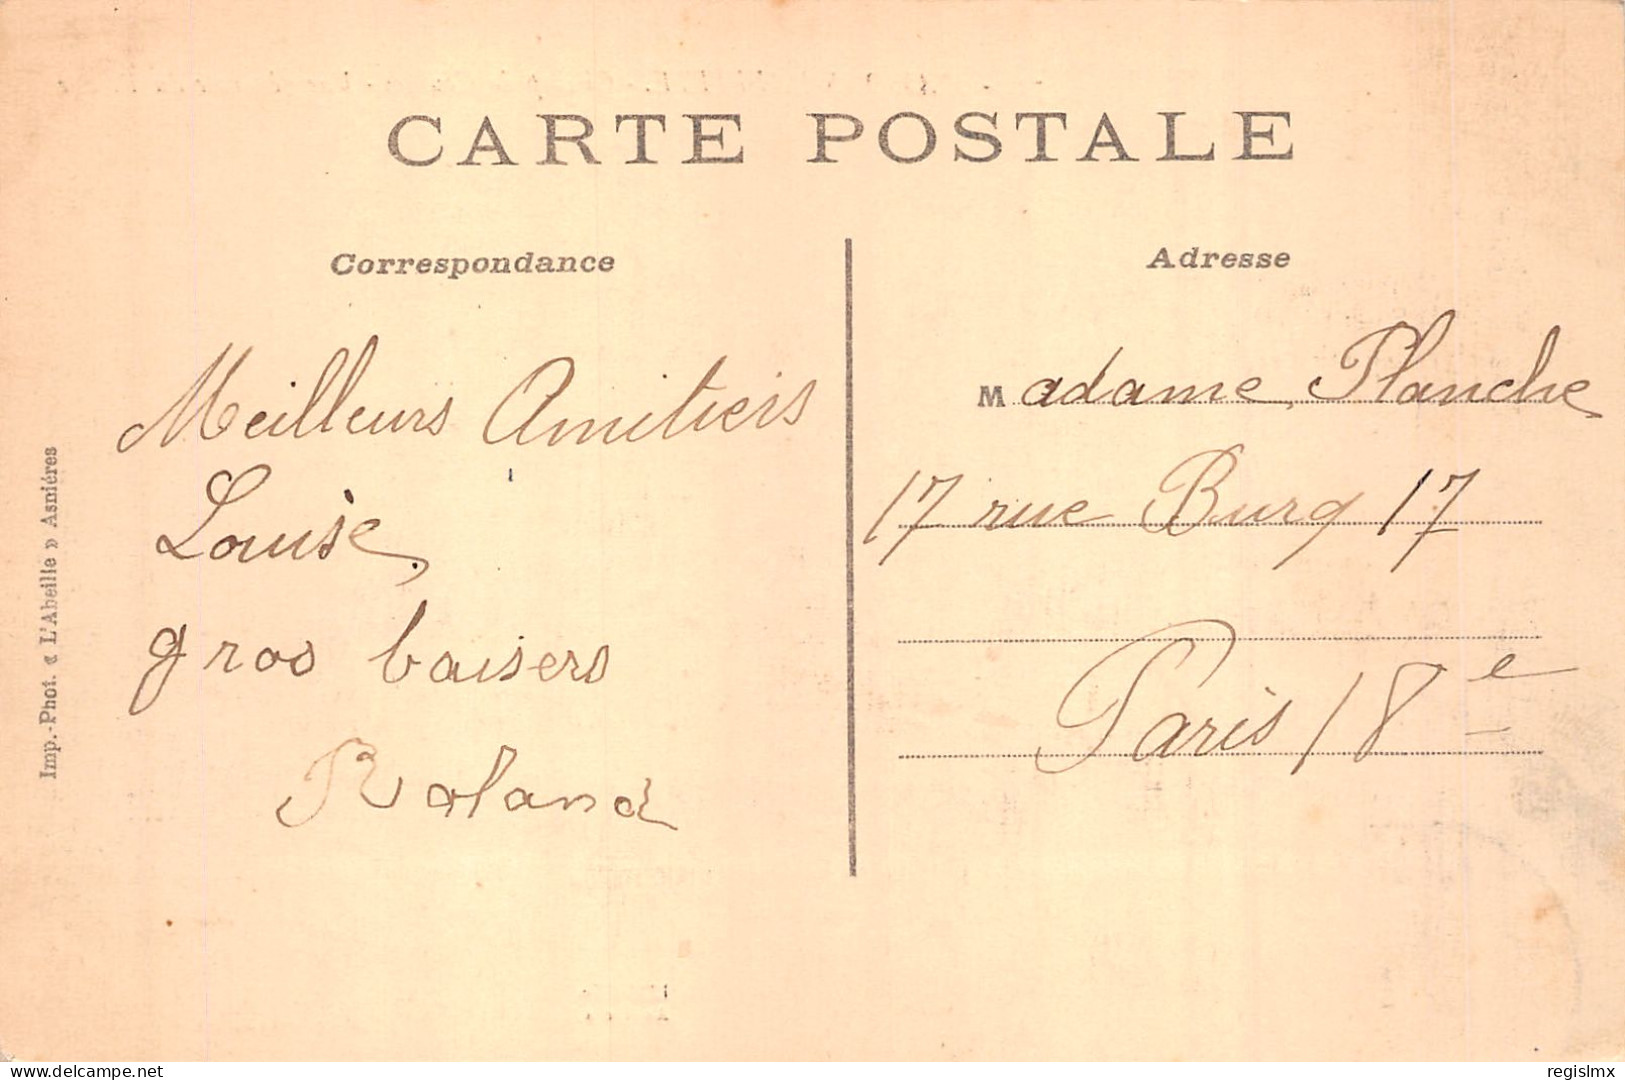 CARTE POSTALE
Correspondance
Adresse
Meilleurs Amitieis
Louise,
gros baisers
Roland
Madame Planche
17 rue Burq 17
Paris 18e
Imp.-Phot. « L'Abeille » Asnières
Website : www.delcampe.net
regislmx